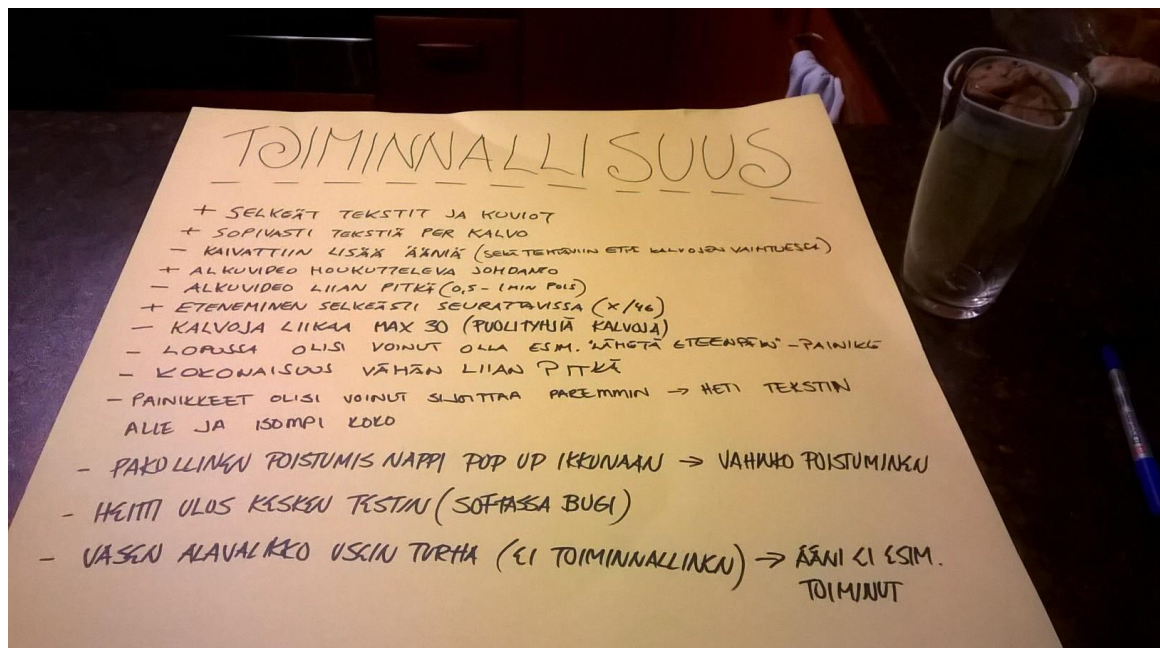 TOIMINNALLISUUS
+ SELKEÄT TEKSTIT JA KUVIOT
+ SOPIVASTI TEKSTIÄ PER KALVO
- KAIVATTIIN LISÄÄ ÄÄNIÄ (SEKÄ TEHTÄVIIN ETTÄ KALVOJEN VAIHTUESSA)
+ ALKUVIDEO HOUKUTTELEVA JOHDANTO
- ALKUVIDEO LIIAN PITKÄ (0,5 - 1 MIN POIS)
+ ETENEMINEN SELKEÄSTI SEURATTAVISSA (X/46)
- KALVOJA LIIKAA MAX 30 (PUOLITYHJIÄ KALVOJA)
- LOPUSSA OLISI VOINUT OLLA ESIM. "LÄHETÄ ETEENPÄIN" - PAINIKE
- KOKONAISUUS VÄHÄN LIIAN PITKÄ
- PAINIKKEET OLISI VOINUT SIJOITTAA PAREMMIN → HETI TEKSTIN
ALLE JA ISOMPI KOKO
- PAKOLLINEN POISTUMIS NAPPI POP UP IKKUNAAN → VAHINKO POISTUMINEN
- HEITTI ULOS KESKEN TESTIN (SOFTASSA BUGI)
- VASEN ALAVALIKKO USEIN TURHA (EI TOIMINNALLINEN) → ÄÄNI EI ESIM.
TOIMINUT